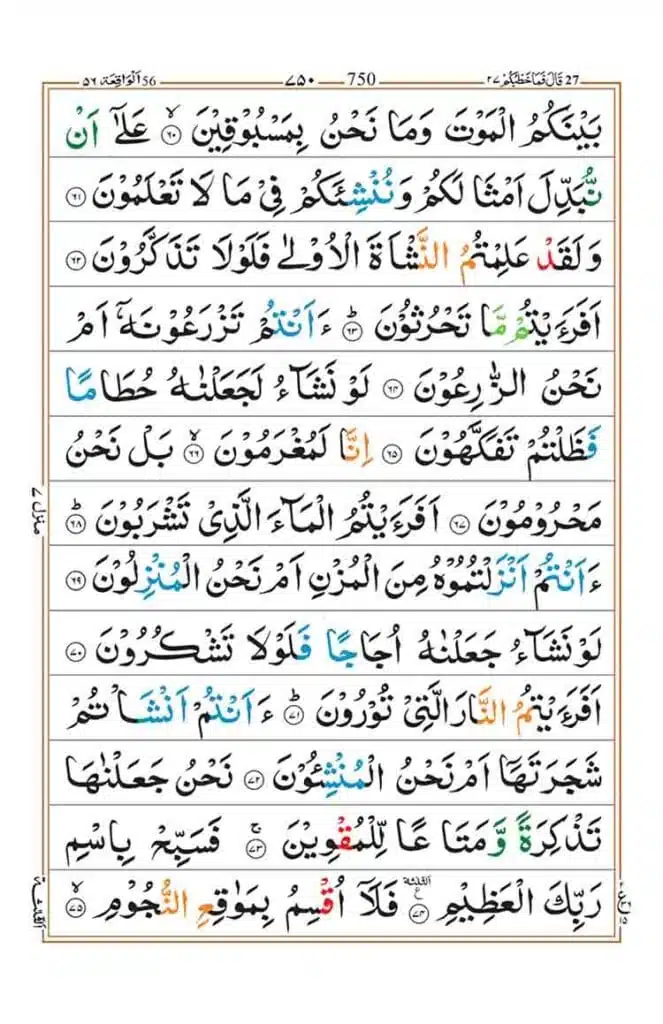 27 قَالَ فَمَا خَطْبُكُمْ ٢٧
750 ٧٥٠
56 اَلْوَاقِعَة ٥٦
بَيْنَكُمُ الْمَوْتَ وَمَا نَحْنُ بِمَسْبُوْقِيْنَ ۙ‏﴿۶۰﴾ عَلٰٓى اَنْ
نُّبَدِّلَ اَمْثَالَكُمْ وَنُنْشِئَكُمْ فِىْ مَا لَا تَعْلَمُوْنَ ﴿۶۱﴾
وَلَقَدْ عَلِمْتُمُ النَّشْاَةَ الْاُوْلٰى فَلَوْلَا تَذَكَّرُوْنَ ﴿۶۲﴾
اَفَرَءَيْتُمْ مَّا تَحْرُثُوْنَ ؕ‏﴿۶۳﴾ ءَاَنْتُمْ تَزْرَعُوْنَهٗۤ اَمْ
نَحْنُ الزّٰرِعُوْنَ ﴿۶۴﴾ لَوْ نَشَآءُ لَجَعَلْنٰهُ حُطَامًا
فَظَلْتُمْ تَفَكَّهُوْنَ ﴿۶۵﴾ اِنَّا لَمُغْرَمُوْنَ ۙ‏﴿۶۶﴾ بَلْ نَحْنُ
مَحْرُوْمُوْنَ ﴿۶۷﴾ اَفَرَءَيْتُمُ الْمَآءَ الَّذِىْ تَشْرَبُوْنَ ؕ‏﴿۶۸﴾
ءَاَنْتُمْ اَنْزَلْتُمُوْهُ مِنَ الْمُزْنِ اَمْ نَحْنُ الْمُنْزِلُوْنَ ﴿۶۹﴾
لَوْ نَشَآءُ جَعَلْنٰهُ اُجَاجًا فَلَوْلَا تَشْكُرُوْنَ ﴿۷۰﴾
اَفَرَءَيْتُمُ النَّارَ الَّتِىْ تُوْرُوْنَ ؕ‏﴿۷۱﴾ ءَاَنْتُمْ اَنْشَاْتُمْ
شَجَرَتَهَاۤ اَمْ نَحْنُ الْمُنْشِئُوْنَ ﴿۷۲﴾ نَحْنُ جَعَلْنٰهَا
تَذْكِرَةً وَّمَتَاعًا لِّلْمُقْوِيْنَ ۚ‏﴿۷۳﴾ فَسَبِّحْ بِاسْمِ
رَبِّكَ الْعَظِيْمِ ﴿۷۴﴾ الثلثة ع فَلَاۤ اُقْسِمُ بِمَوٰقِعِ النُّجُوْمِ ۙ‏﴿۷۵﴾
منزل ٧
الثلثة